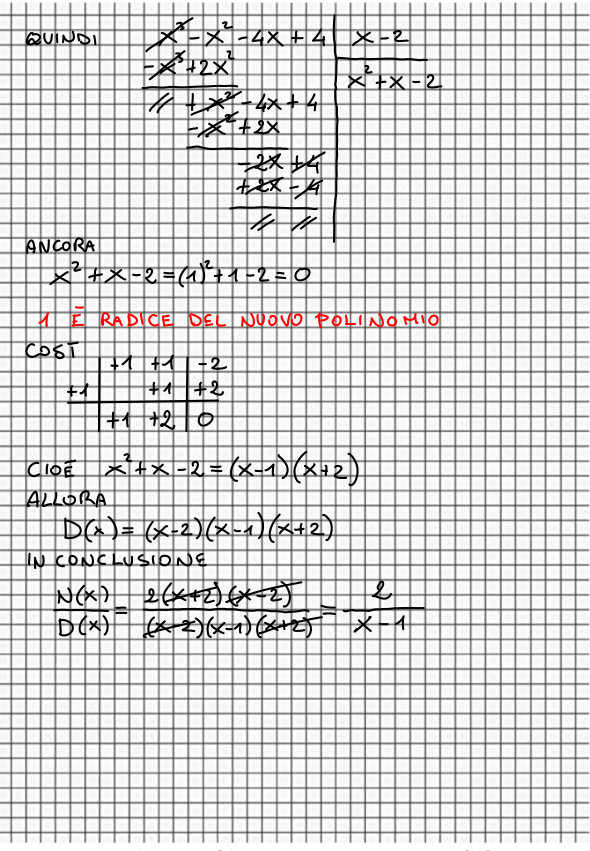 QUINDI x³ - x² - 4x + 4 | x - 2
- x³ + 2x² | x² + x - 2
// + x² - 4x + 4
- x² + 2x
- 2x + 4
+ 2x - 4
// //
ANCORA
x² + x - 2 = (1)² + 1 - 2 = 0
1 È RADICE DEL NUOVO POLINOMIO
COSÌ
+1 +1 | -2
+1 | +1 | +2
+1 +2 | 0
CIOÈ x² + x - 2 = (x-1)(x+2)
ALLORA
D(x) = (x-2)(x-1)(x+2)
IN CONCLUSIONE
N(x)/D(x) = 2(x+2)(x-2)/(x-2)(x-1)(x+2) = 2/x-1